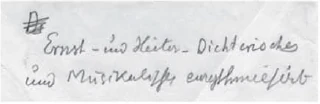 Ernst- und Heiter- Dichterisches
und Musikalisches eurythmisiert